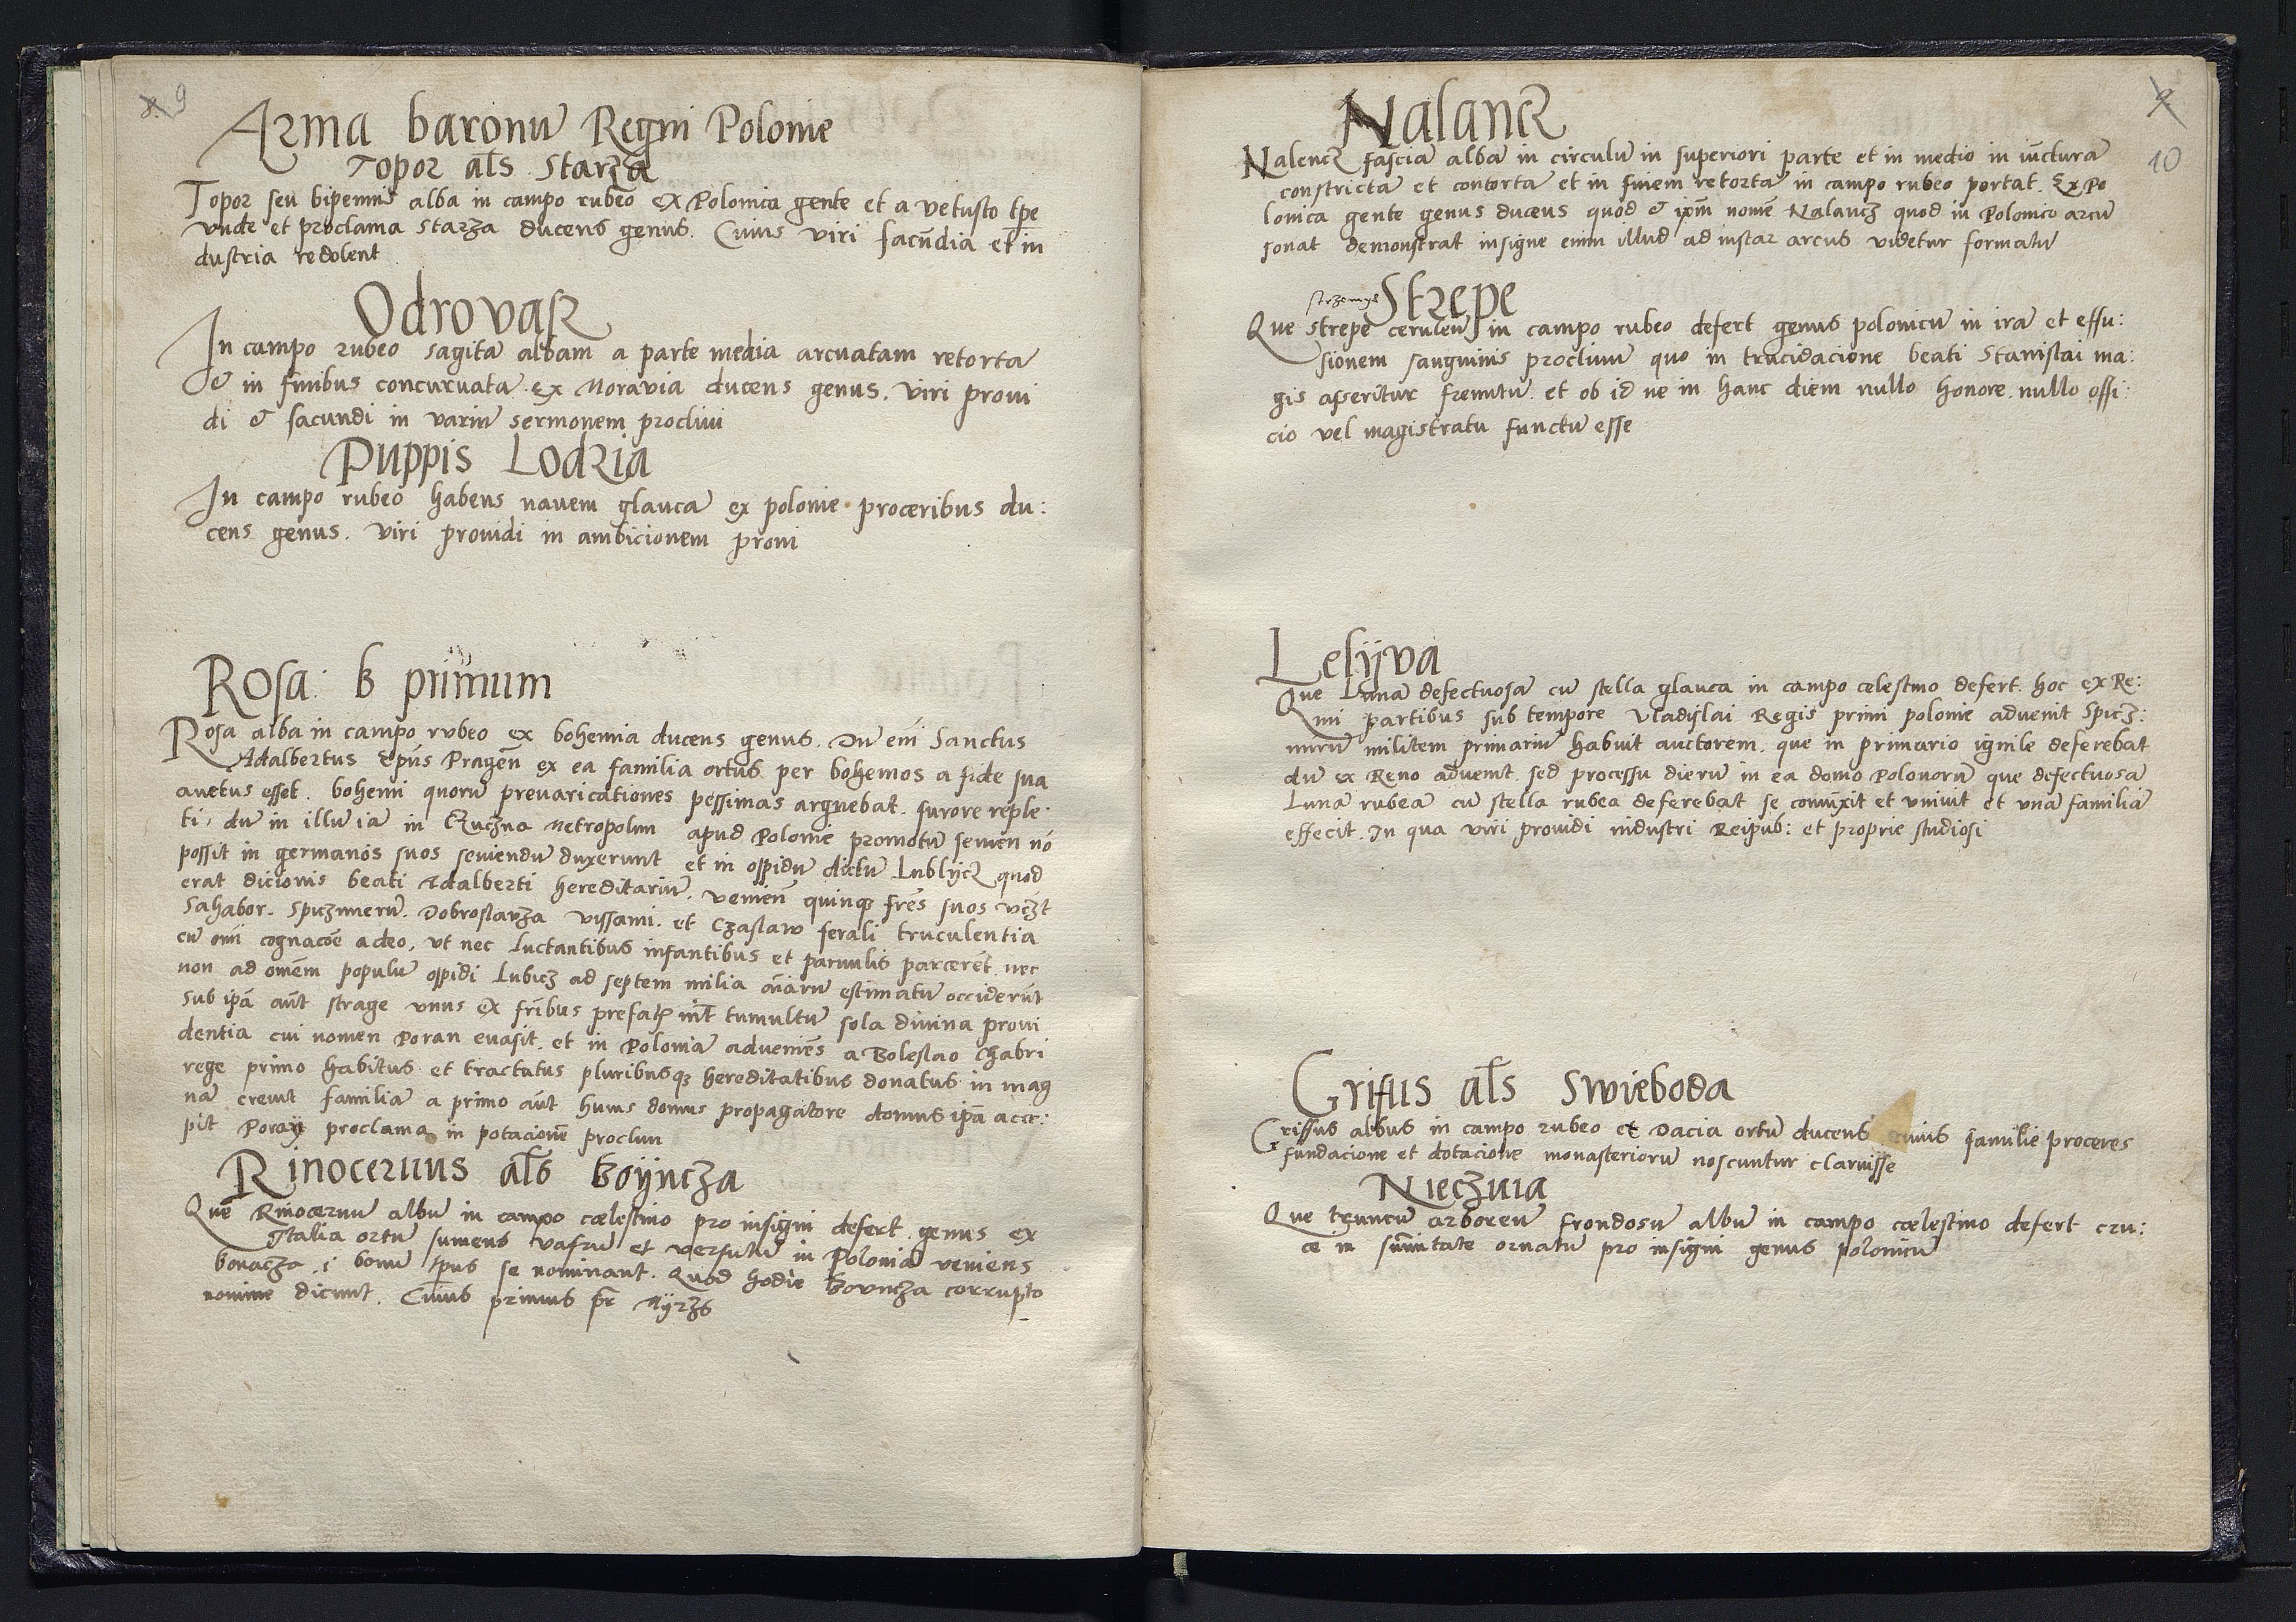 8. 9
Arma baronū Regni Polonie
Topor als Starza
Topor seu bipennis alba in campo rubeo ex Polonica gente et a vetusto tpe
vnde et proclama starza ducens genus. Cuius viri facundia et in
dustria redolent
Odrovasz
In campo rubeo sagitā albam a parte media arcuatam retortā
& in finibus concuruatā. ex Moravia ducens genus. viri proui
di & facundi in variū sermonem procliui
Puppis Lodzia
In campo rubeo habens nauem glaucā ex polonie proceribus du:
cens genus. viri prouidi in ambicionem proni
Rosa: b primum
Rosa alba in campo rubeo ex bohemia ducens genus. Dū eni Sanctus
Adalbertus Epūs Pragen̄ ex ea familia ortus per bohemos a fide sua
auetus esset. bohemi quorū preuaricationes pessimas arguebat. furore reple
ti. dū in illū iā in metropolim apud Polonie promotū seuien nō
possit in germanos suos seuiendū duxerunt et in oppidū dictū Lublycz quod
erat dicionis beati Adalberti hereditariū. venien̄ quinqz fres suos vczt
Sahabor. Spiczmerū. Dobroslavza vissami. et Czaslaw ferali truculentia
cū omi cognacōe adeo, vt nec luctantibus infantibus et paruulis parcerēt. nec
non ad omēm populū oppidi lubicz ad septem milia aīarū estimatū occiderūt
sub ipā aūt strage vnus ex frībus prefatꝝ int tumultū sola diuina proui
dentia cui nomen Poran euasit. et in Poloniā adueniēs a Boleslao Chabri
rege primo habitus et tractatus pluribusqz hereditatibus donatus in mag
nā creuit familiā a primo aūt huius domus propagatore domus ipā acce:
pit Poray proclama in potacionē procliui
Rinocerius als boÿncza
Quē Rinocerū albū in campo cœlestino pro insigni defert. genus ex
Italia ortū sumens vafrū et versutū in Poloniā veniens
bonacza .i bonū tpus se nominant. Quod hodie bovncza corrupto
nomine dicunt. Cuius primus pr Myrzs
9
10
Nalancz
Nalencz fasciā albā in circulū in superiori parte et in medio in iūcturā
constrictā et contortā et in finem retortā in campo rubeo portat. Ex Po
lonica gente genus ducens quod & ipm̄ nomē Nalancz quod in Polonico arcū
sonat demonstrat insigne enim illud ad instar arcus videtur formatū
strzemye Strepe
Que strepe ceruleū in campo rubeo defert genus polonicū in irā et effu:
sionem sanguinis procliuū quo in trucidacione beati Stanislai ma:
gis asseritur fremitū. et ob id ne in hanc diem nullo honore. nullo offi:
cio vel magistratu functū esse
Lelijva
Que Lunā defectuosā cū stella glauca in campo celestino defert. hoc ex Re:
ni partibus sub tempore Vladijlai Regis primi polonie aduenit Spicz:
mirū militem primariū habuit auctorem. que in primario ignile deferebat
dū ex Reno aduenit. sed processu dierū in ea domo Polonorū que defectuosā
Lunā rubeā cū stella rubea deferebat se coniūxit et vniuit et vnā familiā
effecit. In qua viri prouidi industri Reipub: et proprie studiosi
Grifus als Swieboda
Griffus albus in campo rubeo ex Dacia ortū ducens cuius familie proceres
fundacione et dotacione monasteriorū noscuntur claruisse
Nieczuia
Que truncū arboreū frondosū albū in campo cœlestino defert cru:
ce in sūmitate ornatū pro insigni genus polonicū